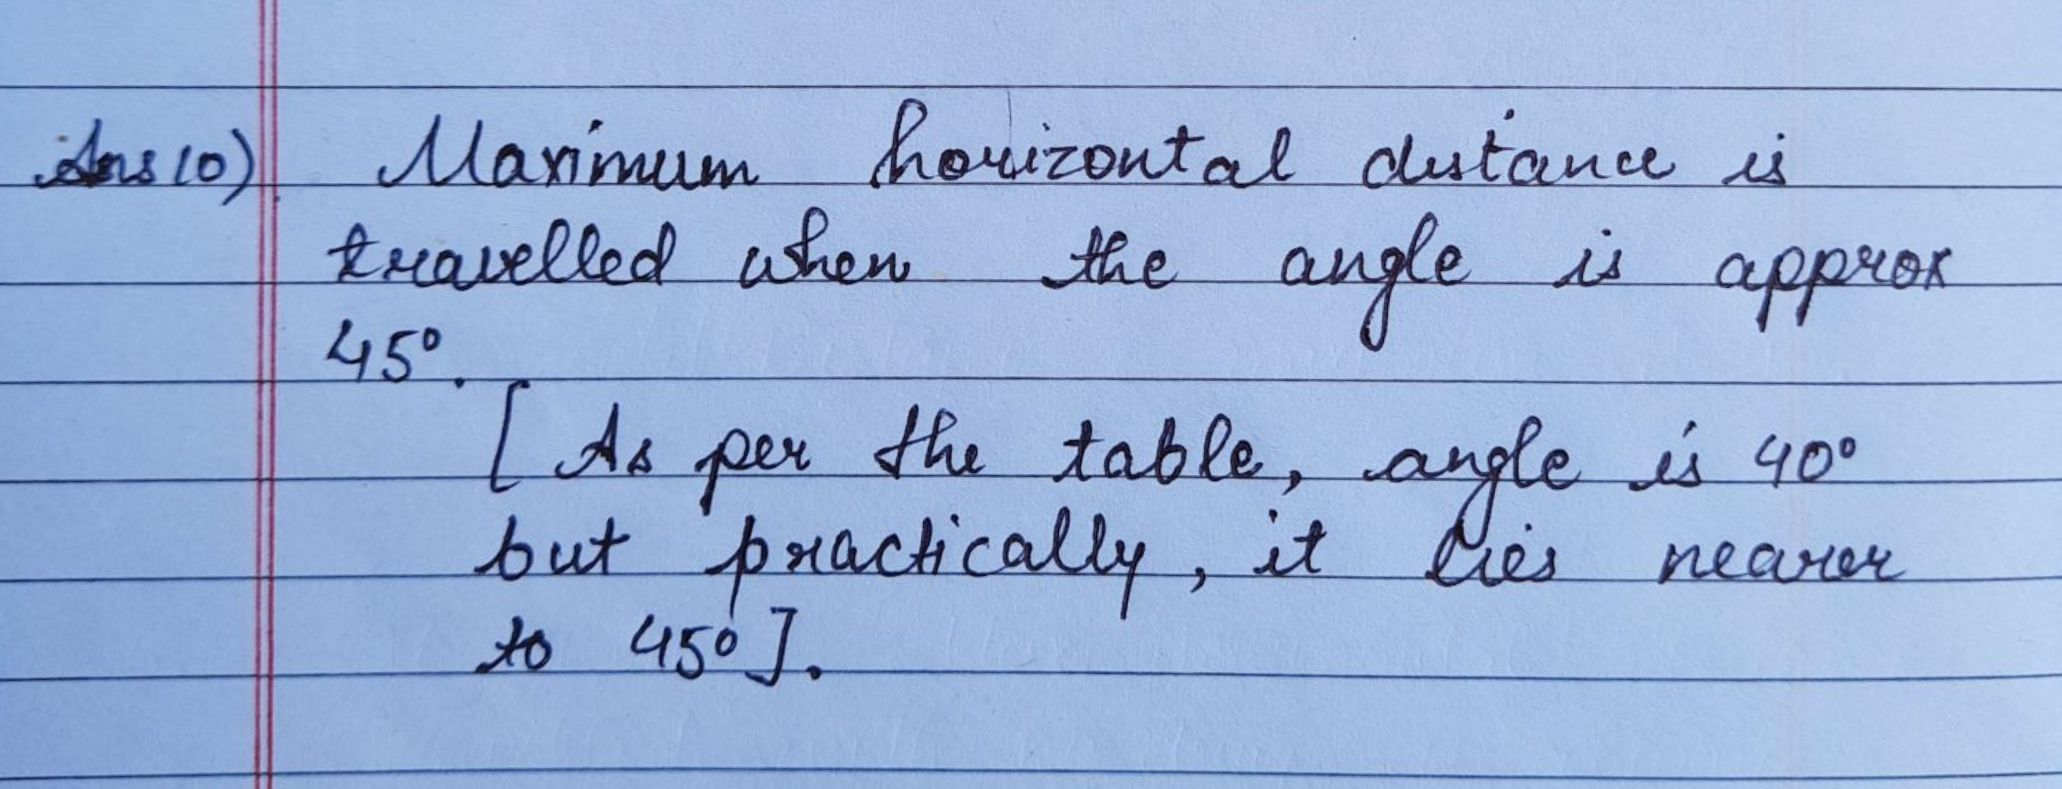 Ans10) Maximum horizontal distance is
travelled when the angle is approx
45°.
[As per the table, angle is 40°
but practically, it lies nearer
to 45°].